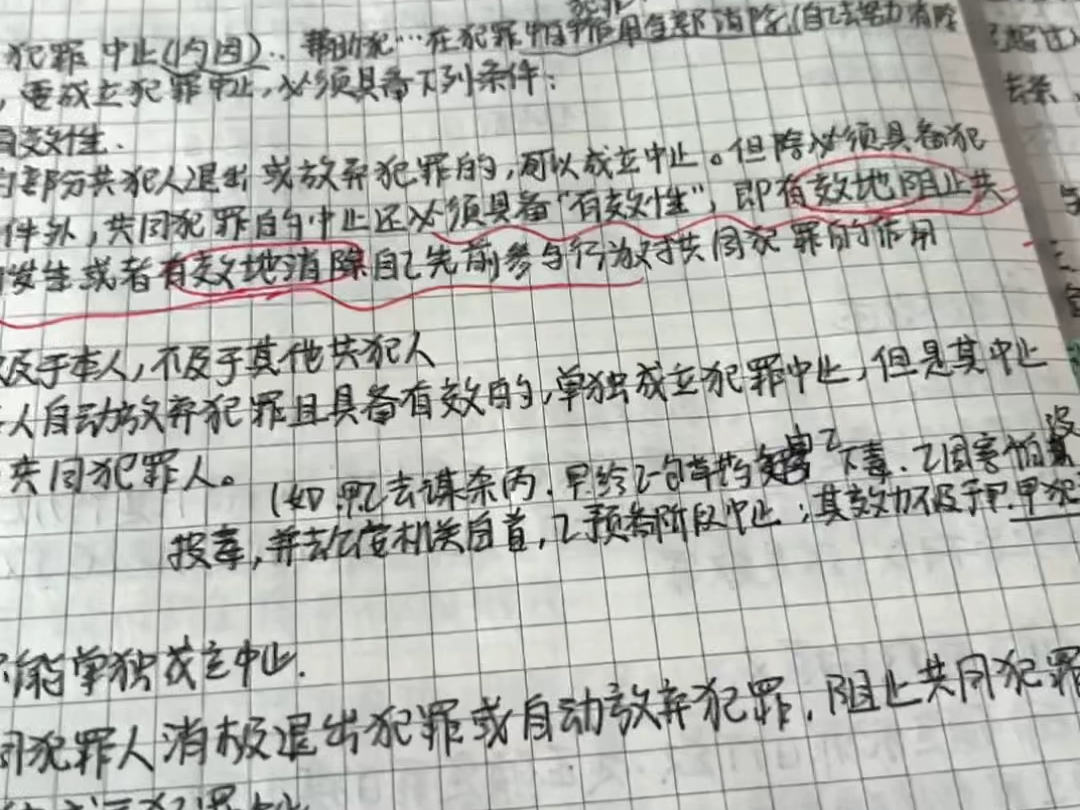 犯罪中止(内因)..帮助犯…在犯罪中 作用全部消除(自己去努力 消除
,要成立犯罪中止,必须具备下列条件:
有效性.
部分共犯人退出或放弃犯罪的,可以成立中止。但除必须具备犯
件外,共同犯罪的中止还必须具备“有效性”,即有效地阻止共
发生或者有效地消除自己先前参与行为对共同犯罪的作用
及于本人,不及于其他共犯人
人自动放弃犯罪且具备有效的,单独成立犯罪中止,但是其中止
共同犯罪人。
(如:甲乙去谋杀丙.甲给乙一包毒药 乙下毒.乙因害怕没
投毒,并去 机关自首,乙预备阶段中止;其效力不及于甲.甲犯
不能单独成立中止.
同犯罪人消极退出犯罪或自动放弃犯罪,阻止共同犯罪